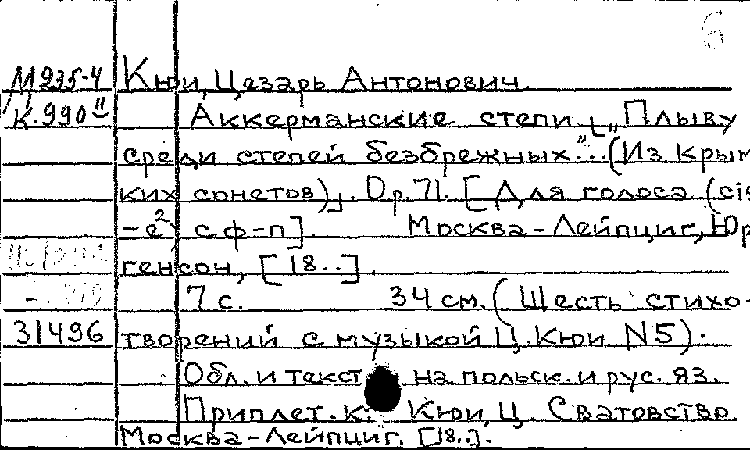 6
М 935-4 Кюи, Цезарь Антонович.
К.990 II Аккерманские степи [„Плыву
среди степей безбрежных"...(Из крым
ких сонетов)]. Op.71. [Для голоса (cis
-e²) с ф-п]. Москва-Лейпциг, Юр
генсон, [18..].
7 с. 34 см. (Шесть стихо-
31496 творений с музыкой Ц. Кюи N5).
Обл. и текст на польск. и рус. яз.
Приплет. к: Кюи, Ц. Сватовство.
Москва-Лейпциг, [18..].